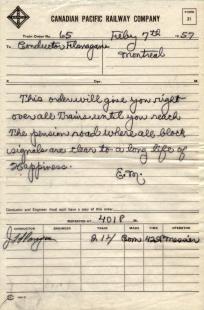 CANADIAN PACIFIC RAILWAY COMPANY
FORM
31
Train Order No. 65 Feby 7th 1957
To Conductor Flanagan
Montreal
At
X Opr. M
This order will give you right
over all Trains until you reach
The pension road where all block
signals are clear to a long life of
Happiness.
E.M.
Conductor and Engineer must each have a copy of this order
REPEATED AT 401P M
CONDUCTOR ENGINEER TRAIN MADE TIME OPERATOR
J Flanagan 214 Com 429P Messier